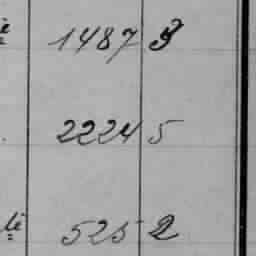 1487 3
2224 5
525 2